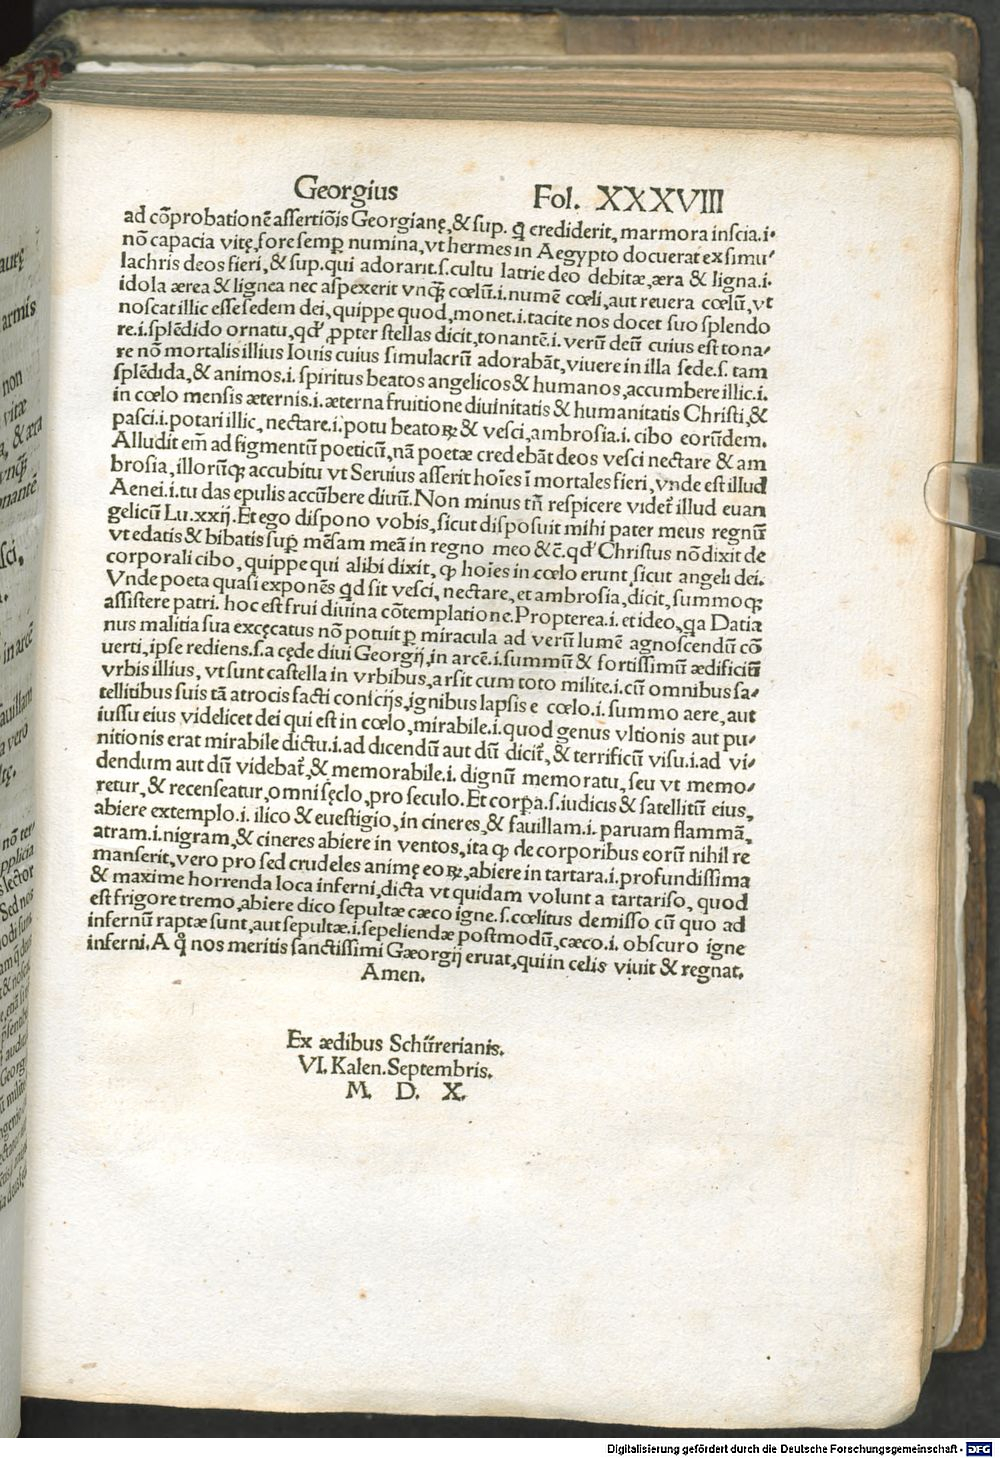 Georgius Fol. XXXVIII
ad cõprobationẽ assertiõis Georgianę, & sup. ꝙ̃ crediderit, marmora inscia.i.
nõ capacia vitę, fore semꝑ numina, vt hermes in Aegypto docuerat ex simu⸗
lachris deos fieri, & sup. qui adorarit.s.cultu latrie deo debitæ, æra & ligna.i.
idola ærea & lignea nec aspexerit vnꝙ̃ cœlũ.i.numẽ cœli, aut reuera cœlũ, vt
noscat illic esse sedem dei, quippe quod, monet.i.tacite nos docet suo splendo
re.i.splẽdido ornatu, qđ ꝓpter stellas dicit, tonantẽ.i. verũ deũ cuius est tona⸗
re nõ mortalis illius Iouis cuius simulacrũ adorabãt, viuere in illa sede.s. tam
splẽdida, & animos.i. spiritus beatos angelicos & humanos, accumbere illic.i.
in cœlo mensis æternis.i.æterna fruitione diuinitatis & humanitatis Christi, &
pasci.i.potari illic, nectare.i.potu beatoꝝ & vesci, ambrosia.i. cibo eorũdem.
Alludit em̃ ad figmentũ poeticũ, nã poetæ credebãt deos vesci nectare & am
brosia, illorũꝙ accubitu vt Seruius asserit hoĩes ĩmortales fieri, vnde est illud
Aenei.i.tu das epulis accũbere diuũ. Non minus tñ respicere videt̃ illud euan
gelicũ Lu.xxij. Et ego dispono vobis, sicut disposuit mihi pater meus regnũ
vt edatis & bibatis suꝑ mẽsam meã in regno meo &c̃. qđ Christus nõ dixit de
corporali cibo, quippe qui alibi dixit, ꝙ hoĩes in cœlo erunt sicut angeli dei.
Vnde poeta quasi exponẽs qd sit vesci, nectare, et ambrosia, dicit, summoꝗ;
assistere patri. hoc est frui diuina cõtemplatione. Propterea.i. et ideo, qa Datia
nus malitia sua excęcatus nõ potuit ꝑ miracula ad verũ lumẽ agnoscendũ cõ
uerti, ipse rediens.s.a cęde diui Georgij, in arcẽ.i.summũ & fortissimũ ædificiũ
vrbis illius, vt sunt castella in vrbibus, arsit cum toto milite.i.cũ omnibus sa⸗
tellitibus suis tã atrocis facti conscijs, ignibus lapsis e cœlo.i. summo aere, aut
iussu eius videlicet dei qui est in cœlo, mirabile.i.quod genus vltionis aut pu⸗
nitionis erat mirabile dictu.i.ad dicendũ aut dũ dicit̃, & terrificũ visu.i.ad vi⸗
dendum aut dũ videbat̃, & memorabile.i. dignũ memoratu, seu vt memo⸗
retur, & recenseatur, omni sęclo, pro seculo. Et corꝑa.s.iudicis & satellitũ eius,
abiere extemplo.i. ilico & euestigio, in cineres, & fauillam.i. paruam flammã,
atram.i.nigram, & cineres abiere in ventos, ita ꝙ de corporibus eorũ nihil re
manserit, vero pro sed crudeles animę eoꝝ, abiere in tartara.i.profundissima
& maxime horrenda loca inferni, dicta vt quidam volunt a tartariso, quod
est frigore tremo, abiere dico sepultæ cæco igne.s.cœlitus demisso cũ quo ad
infernũ raptæ sunt, aut sepultæ.i.sepeliendæ postmodũ, cæco.i. obscuro igne
inferni. A ꝗ̃ nos meritis sanctissimi Gæorgij eruat, qui in celis viuit & regnat.
Amen.
Ex ædibus Schürerianis.
VI. Kalen. Septembris.
M. D. X.
Digitalisierung gefördert durch die Deutsche Forschungsgemeinschaft - DFG